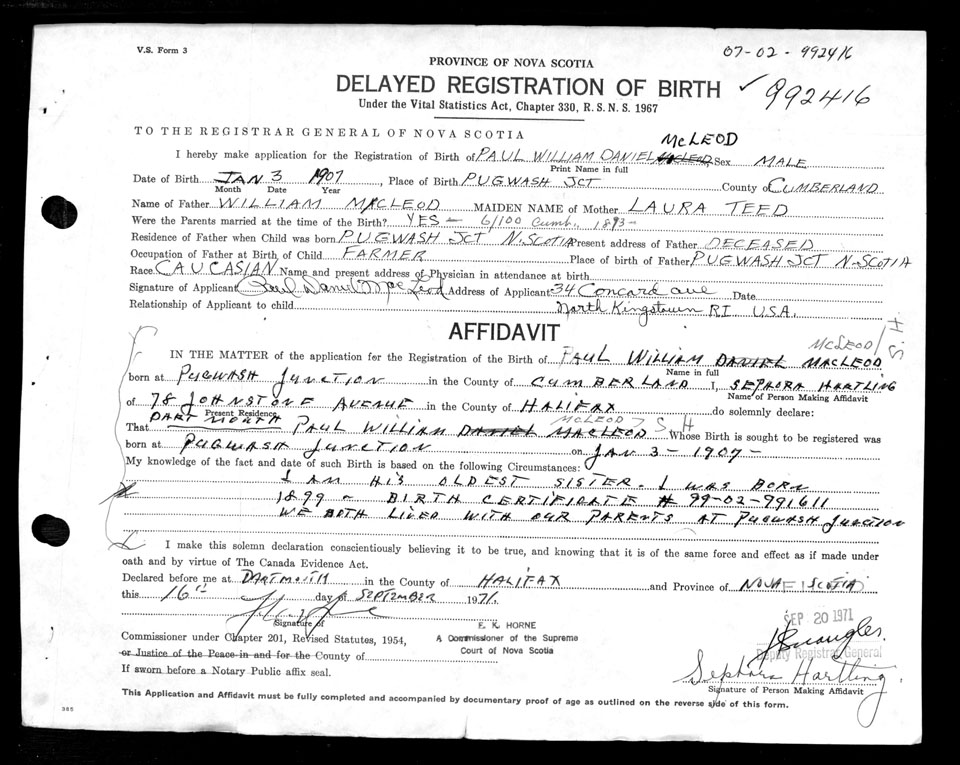 V.S. Form 3
07-02-992416
PROVINCE OF NOVA SCOTIA
DELAYED REGISTRATION OF BIRTH ✓ 992416
Under the Vital Statistics Act, Chapter 330, R.S.N.S. 1967
TO THE REGISTRAR GENERAL OF NOVA SCOTIA
McLEOD
I hereby make application for the Registration of Birth of PAUL WILLIAM DANIEL McLEOD Sex MALE
Print Name in full
Date of Birth JAN 3 1907, Place of Birth PUGWASH JCT County of CUMBERLAND
Month Date Year
Name of Father WILLIAM MACLEOD MAIDEN NAME of Mother LAURA TEED
Were the Parents married at the time of the Birth? YES - 6/100 Cumb. 1893-
Residence of Father when Child was born PUGWASH JCT N.SCOTIA Present address of Father DECEASED
Occupation of Father at Birth of Child FARMER Place of birth of Father PUGWASH JCT N-SCOTIA
Race CAUCASIAN Name and present address of Physician in attendance at birth
Signature of Applicant Paul Daniel MacLeod Address of Applicant 34 Concord ave Date
Relationship of Applicant to child North Kingstown RI. U.S.A.
AFFIDAVIT
McLEOD/ S H
IN THE MATTER of the application for the Registration of the Birth of PAUL WILLIAM DANIEL MACLEOD
Name in full
born at PUGWASH JUNCTION in the County of CUMBERLAND I, SEPHORA HARTLING
Name of Person Making Affidavit
of 78 JOHNSTONE AVENUE in the County of HALIFAX do solemnly declare:
DARTMOUTH Present Residence McLEOD / S H
That PAUL WILLIAM DANIEL MACLEOD Whose Birth is sought to be registered was
born at PUGWASH JUNCTION on JAN 3 - 1907 -
My knowledge of the fact and date of such Birth is based on the following Circumstances:
I AM HIS OLDEST SISTER. I WAS BORN
1899 - BIRTH CERTIFICATE # 99-02-991611
WE BOTH LIVED WITH OUR PARENTS AT PUGWASH JUNCTION
I make this solemn declaration conscientiously believing it to be true, and knowing that it is of the same force and effect as if made under
oath and by virtue of The Canada Evidence Act.
Declared before me at DARTMOUTH in the County of HALIFAX and Province of NOVA SCOTIA
this 16th day of SEPTEMBER 1971.
SEP 20 1971
Signature of
E. K. HORNE
Commissioner under Chapter 201, Revised Statutes, 1954, A Commissioner of the Supreme
Deputy Registrar General
or Justice of the Peace in and for the County of Court of Nova Scotia
Sephora Hartling
If sworn before a Notary Public affix seal.
Signature of Person Making Affidavit
This Application and Affidavit must be fully completed and accompanied by documentary proof of age as outlined on the reverse side of this form.
385